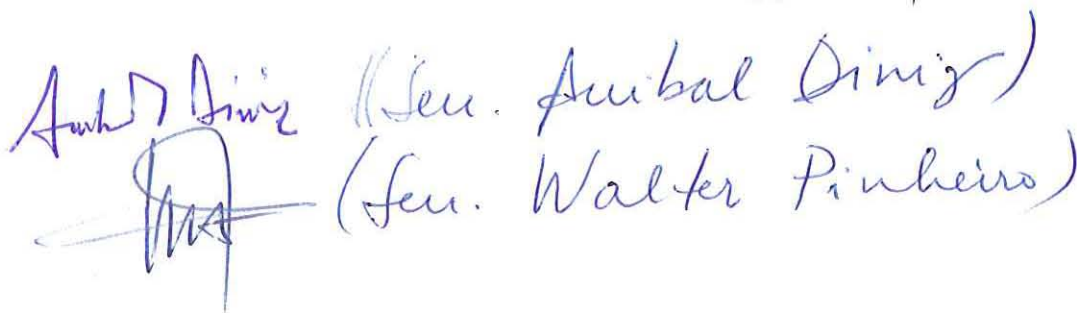 Anibal Diniz (Sen. Anibal Diniz)
(Sen. Walter Pinheiro)